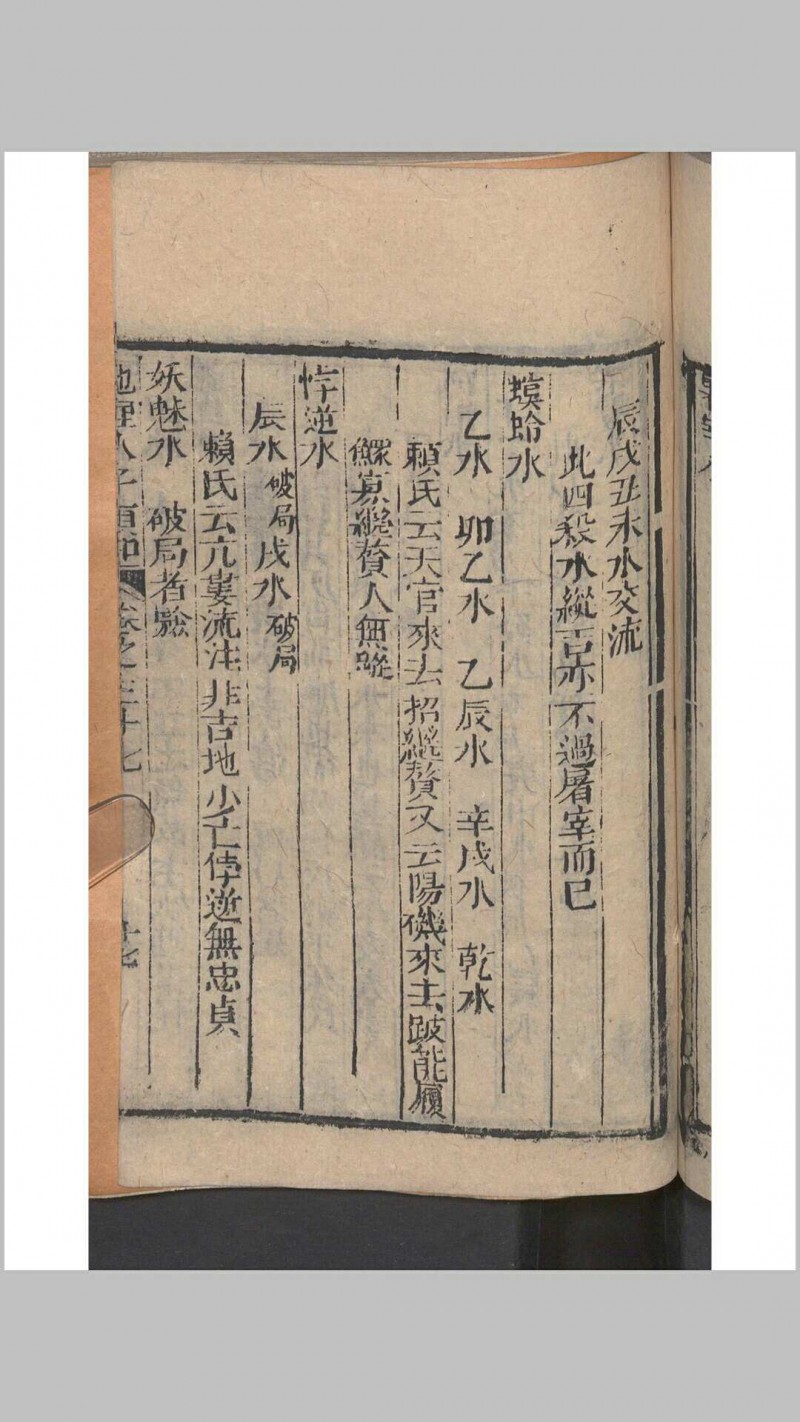 辰戌丑未水交流
此四殺水縱吉亦不過屠宰而已
螟蛉水
乙水 卯乙水 乙辰水 辛戌水 乾水
賴氏云天官來去招繼贅又云陽磯來去跛能履
鰥寡繼贅人無蹤
悖逆水
辰水破局戌水破局
賴氏云亢婁流注非吉地少亡悖逆無忠貞
妖魅水 破局者驗
地理人子須知 卷之三十七 十七